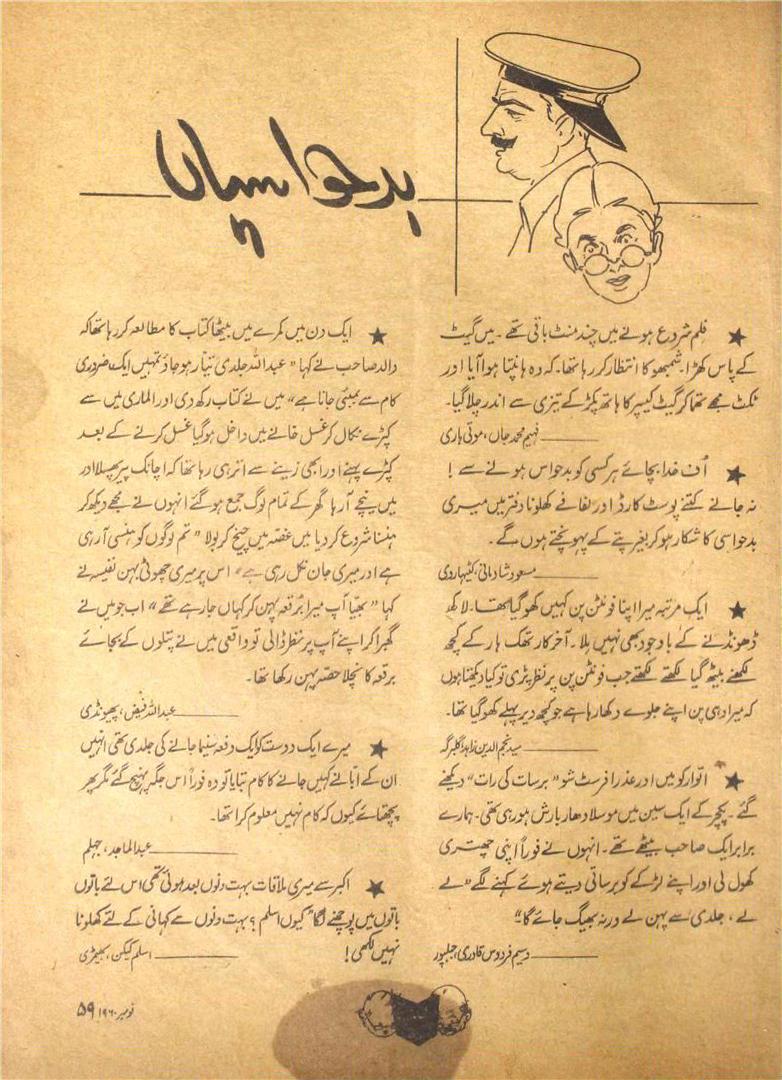 بدحواسیاں
★ فلم شروع ہونے میں چند منٹ باقی تھے ۔ میں گیٹ
کے پاس کھڑا شمبھو کا انتظار کر رہا تھا۔ کہ وہ ہانپتا ہوا آیا اور
ٹکٹ مجھے تھما کر گیٹ کیپر کا ہاتھ پکڑ کے تیزی سے اندر چلا گیا۔
فہیم محمد جاں، موتی ہاری
★ اُف خدا بچائے ہر کسی کو بدحواس ہونے سے !
نہ جانے کتنے پوسٹ کارڈ اور لفافے کھلونا دفتر میں میری
بدحواسی کا شکار ہو کر بغیر پتے کے پہونچتے ہوں گے ۔
مسعود شادانی، کٹیہاروی
★ ایک مرتبہ میرا اپنا فونٹن پن کہیں کھو گیا تھا۔ لاکھ
ڈھونڈنے کے باوجود بھی نہیں ملا۔ آخر کار تھک ہار کے کچھ
لکھنے بیٹھ گیا لکھتے لکھتے جب فونٹن پن پر نظر پڑی تو کیا دیکھتا ہوں
کہ میرا وہی پن اپنے جلوے دکھا رہا ہے جو کچھ دیر پہلے کھو گیا تھا۔
سید نجم الدین زاہد، گلبرگہ
★ اتوار کو میں اور عذرا فرسٹ شو "برسات کی رات" دیکھنے
گئے ۔ پکچر کے ایک سین میں موسلا دھار بارش ہو رہی تھی۔ ہمارے
برابر ایک صاحب بیٹھے تھے ۔ انہوں نے فوراً اپنی چھتری
کھول لی اور اپنے لڑکے کو برساتی دیتے ہوئے کہنے لگے "لے
لے ، جلدی سے پہن لے ورنہ بھیگ جائے گا"
وسیم فردوس قادری، جبلپور
★ ایک دن میں کمرے میں بیٹھا کتاب کا مطالعہ کر رہا تھا کہ
والد صاحب نے کہا "عبداللہ جلدی تیار ہو جاؤ تمہیں ایک ضروری
کام سے بمبئی جانا ہے" میں نے کتاب رکھ دی اور الماری میں سے
کپڑے نکال کر غسل خانے میں داخل ہو گیا غسل کرنے کے بعد
کپڑے پہنے اور ابھی زینے سے اتر ہی رہا تھا کہ اچانک پیر پھسلا اور
میں نیچے آ رہا گھر کے تمام لوگ جمع ہو گئے انہوں نے مجھے دیکھ کر
ہنسنا شروع کر دیا میں غصہ میں چیخ کر بولا "تم لوگوں کو ہنسی آ رہی
ہے اور میری جان نکل رہی ہے" اس پر میری چھوٹی بہن نفیسہ نے
کہا "بھیّا آپ میرا بُرقعہ پہن کر کہاں جا رہے تھے" اب جو میں نے
گھبرا کر اپنے آپ پر نظر ڈالی تو واقعی میں نے پتلون کے بجائے
برقعہ کا نچلا حصّہ پہن رکھا تھا۔
عبداللہ فیض، بھیونڈی
★ میرے ایک دوست کو ایک دفعہ سنیما جانے کی جلدی تھی انہیں
ان کے ابّا نے کہیں جانے کا کام بتایا تو وہ فوراً اس جگہ پہنچ گئے مگر پھر
پچھتائے کیوں کہ کام نہیں معلوم کرا تھا۔
عبدالماجد، جہلم
★ اکبر سے میری ملاقات بہت دنوں بعد ہوئی تھی اس لئے باتوں
باتوں میں پوچھنے لگا "کیوں اسلم ؟ بہت دنوں سے کہانی کے لئے کھلونا
نہیں لکھی !
اسلم
نومبر ۱۹۶۰ ۵۹